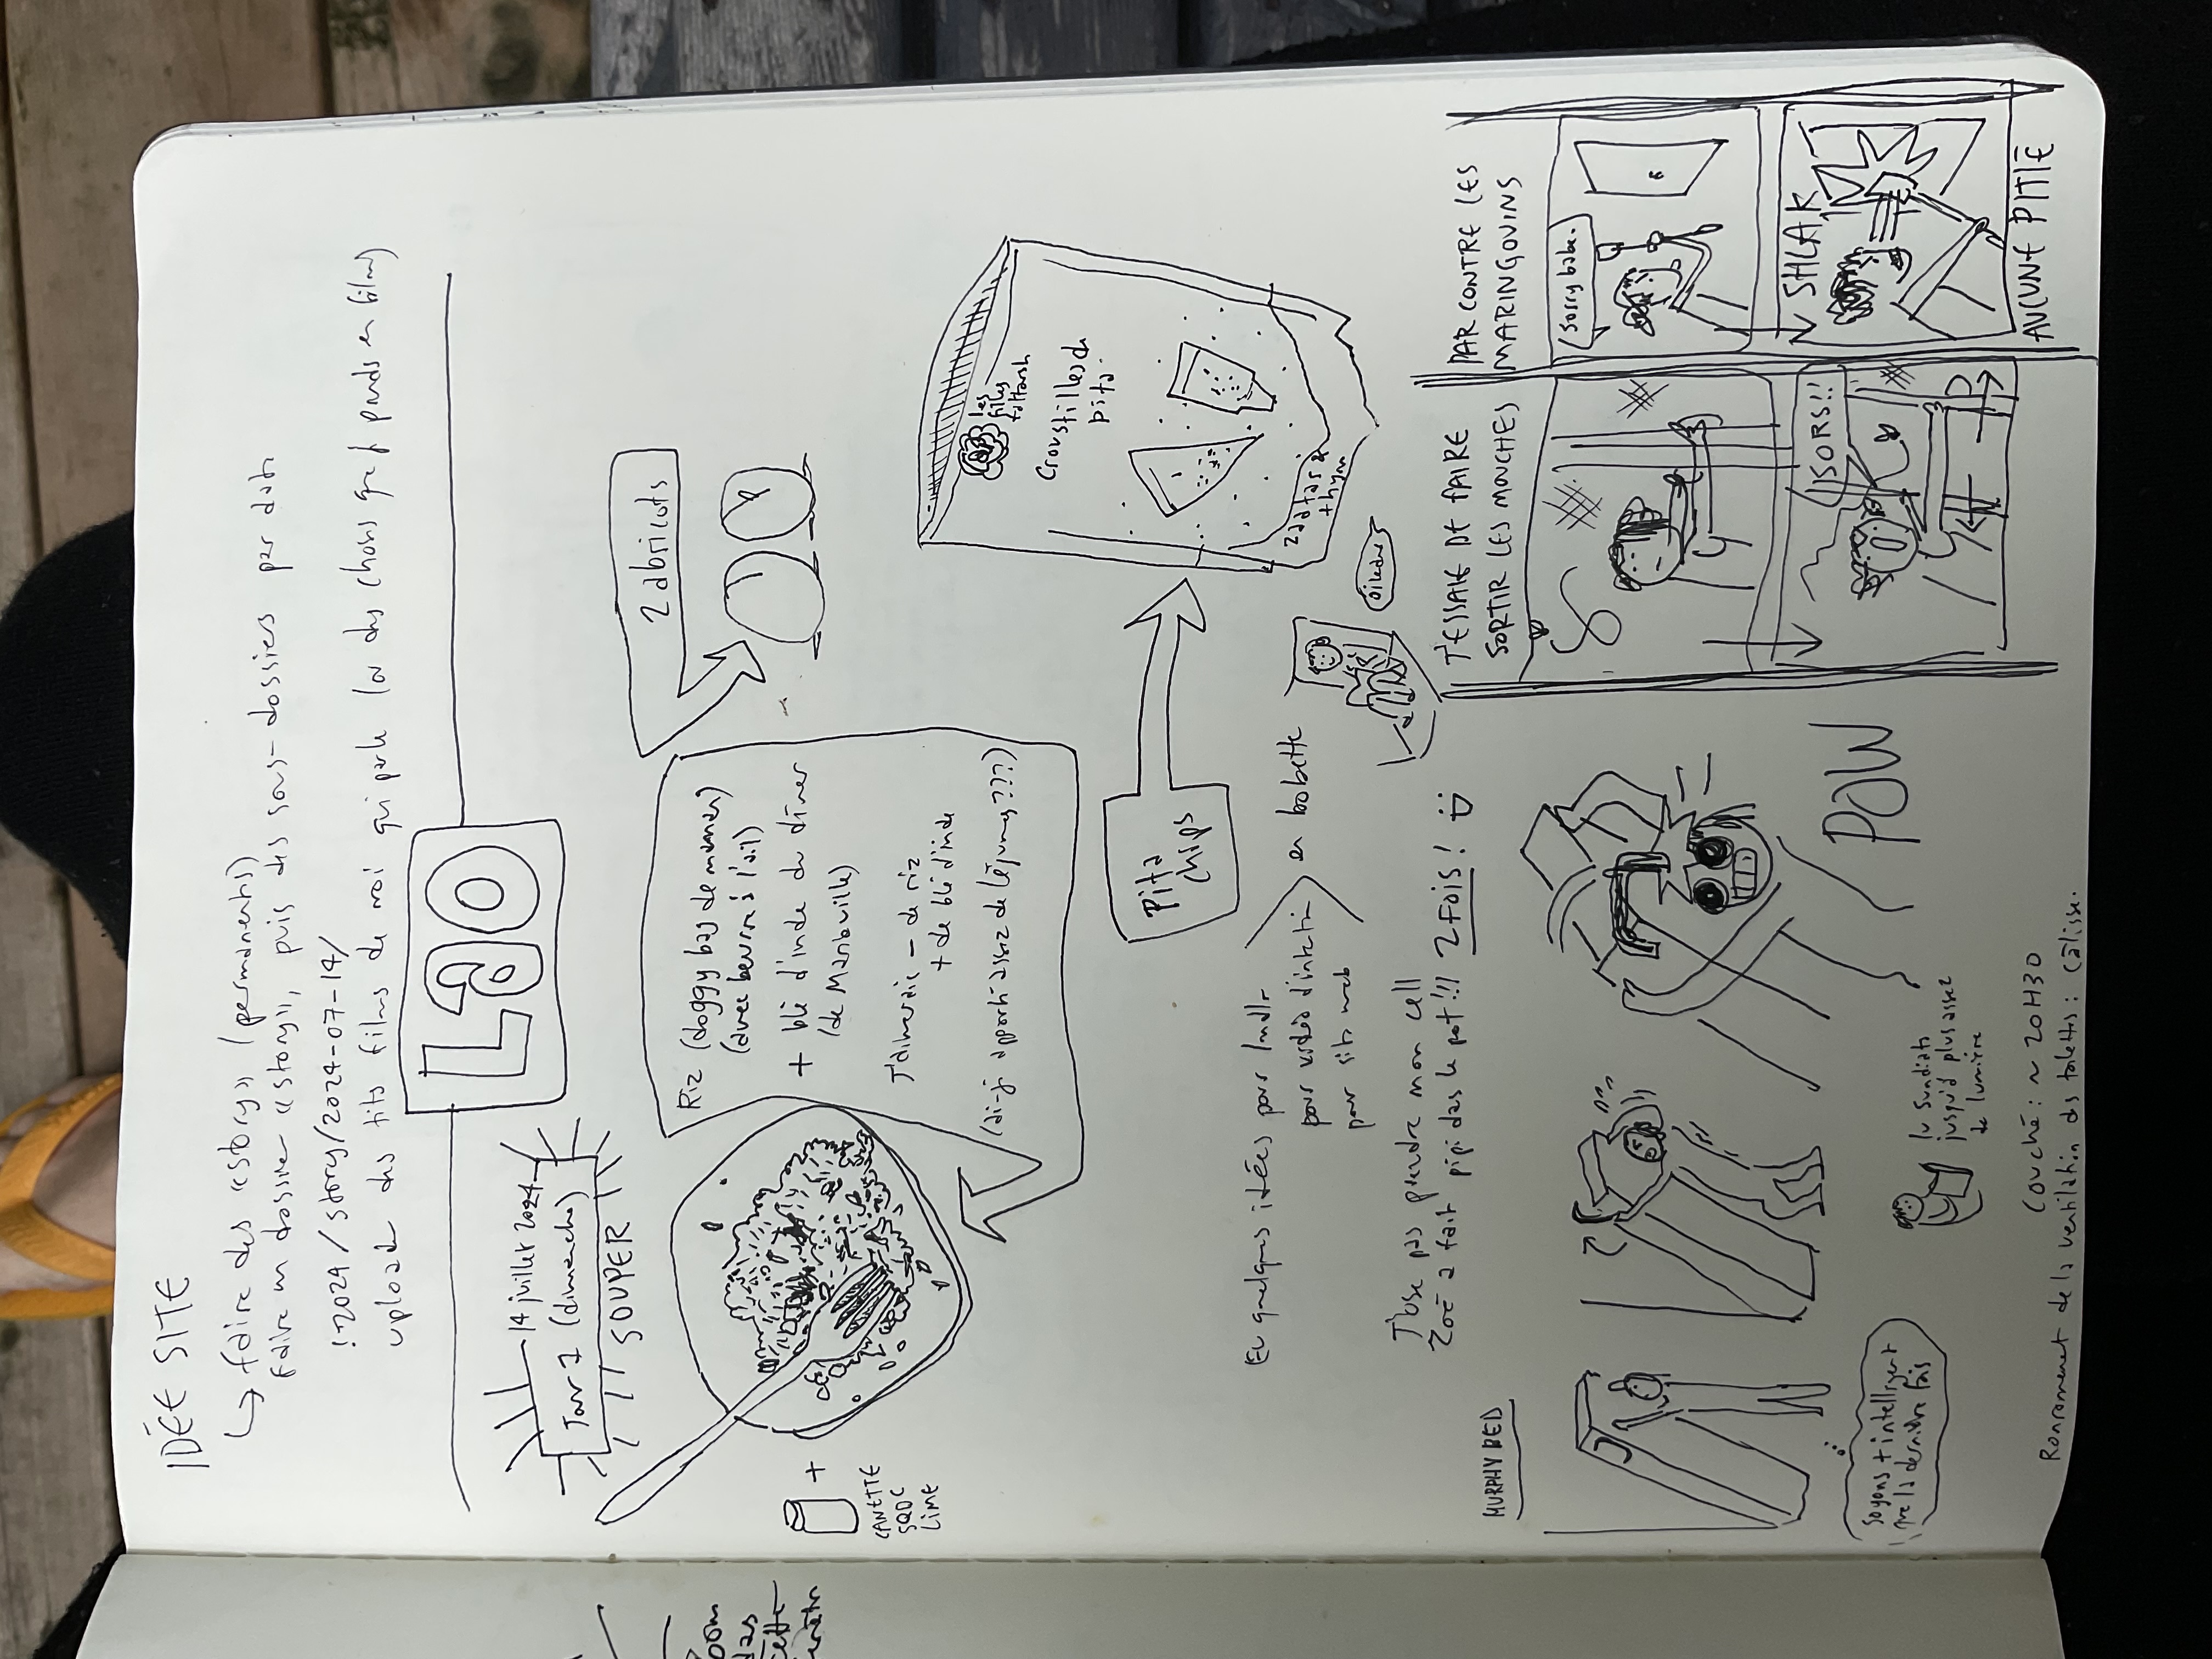 IDÉE SITE
↳ faire des «story» (permanents)
faire un dossier «story», puis des sous-dossiers par date
:2024/story/2024-07-14/
upload des tits films de moi qui parle (ou des choses que j' prends en films)
LAO
14 juillet 2024
Jour 1 (dimanche)
SOUPER
2 abricots
Riz (doggy bag de maman)
(avec beurre à l'ail)
+ blé d'inde du dîner
(de Marieville)
J'aimerais - de riz
+ de blé d'inde
(ai-j' apporté assez de légumes???)
+
CANETTE
SQDC
LIME
Pita
chips
les
filles
fattoush
Croustilles de
pita
zaatar &
thym
Eu quelques idées pour
pour vidéo d'intro
pour site web
en bobette
J'ose pas prendre mon cell
Zoé a fait pipi dans le pot!!! 2 FOIS! :)
MURPHY BED
soyons + intelligent
que la dernière fois
POW
lu Sundiata
jusqu'à plus assez
de lumière
Couché: ~ 20H30
Ronronnement de la ventilation des toilettes: câlisse.
J'ESSAIE DE FAIRE
SORTIR LES MOUCHES
SORS!!
PAR CONTRE LES
MARINGOUINS
Sorry babe.
SHLAK
AUCUNE PITIÉ